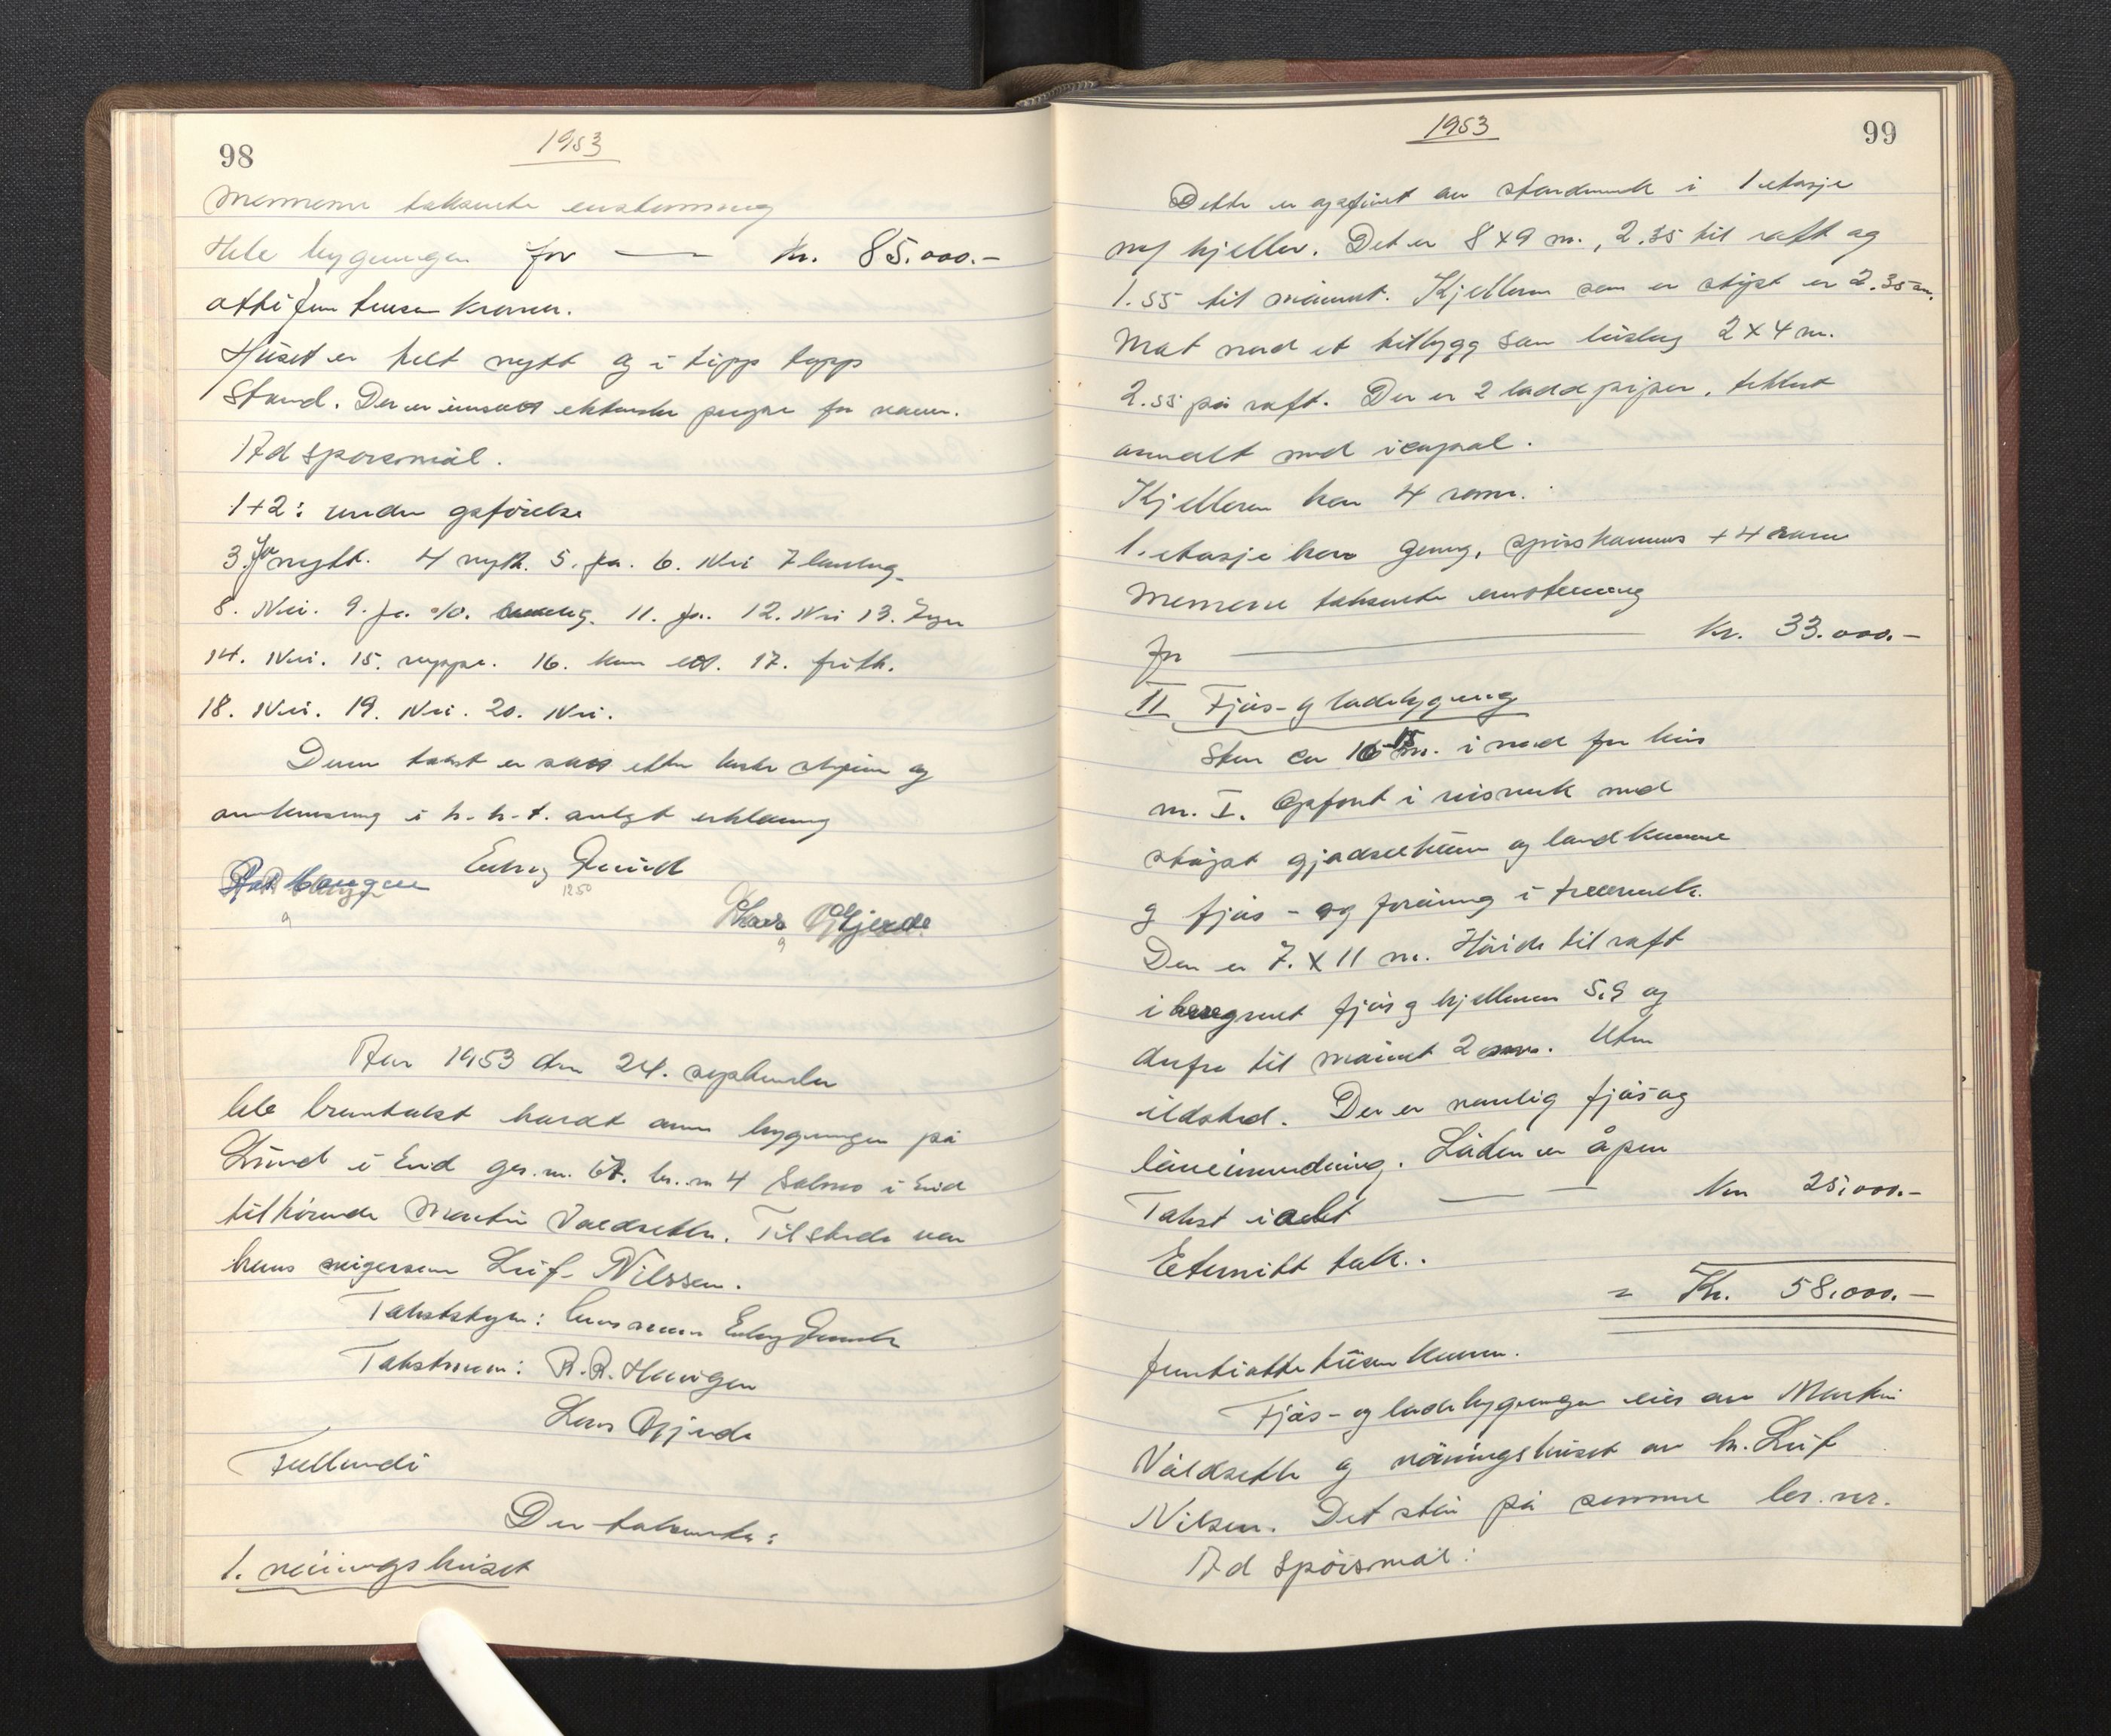 98
1953
Mennene takserte enstemmig
Hele bygningen for — kr. 85.000.-
åttifem tusen kroner.
Huset er helt nytt og i tipp topp
stand. Der er innsatt elektriske for varm.
Ad spørsmål.
1+2: under opførelse
3. Ja nytt. 4 nytt. 5. Ja. 6. Nei 7
8. Nei. 9. Ja. 10. 11. Ja. 12. Nei 13.
14. Nei. 15. 16. 17. fritt.
18. Nei. 19. Nei. 20. Nei.
Denne takst er satt etter beste skjønn og
i h.h.t. avlagt erklæring
1250
Lars Gjerde
År 1953 den 24. september
ble branntakst holdt over bygningen på
Lund i Eid gr. nr. 67. br. nr 4 Solmo i Eid
tilhørende Martin Valdseth. Tilstede var
hans svigersønn Leif Nilssen.
Takststyrer: lensmann
Takstmenn: R. R. Haugen
Lars Gjerde
Der takseres:
1. våningshuset
1953
99
Dette er opført av i 1 etasje
m/ kjeller. Det er 8x9 m., 2.35 til raft og
1.55 til mønnet. Kjelleren som er støpt er 2.35 m.
Mot nord et tilbygg som 2x4 m.
2.35 på raft. Der er 2 piper, tekket
med
Kjelleren har 4 rom.
1. etasje har gang, spiskammers + 4 rom
Mennene takserte enstemmig
for — kr. 33.000.-
II Fjøs- og ladebygning
Sten ca 16 m. i nord for hus
nr. I. Opført i med
støpt gjødselkum og landkumme
og fjøs- og foring i
Den er 7. x 11 m. Høide til raft
iberegnet fjøs og kjelleren 5,9 og
derfra til mønnet 2 m. Uten
ildsted. Der er vanlig fjøs og
låveinnredning. Låden er åpen
Takst i alt — — kr 25,000.-
Eternitt tak.
= Kr. 58.000.-
femtiåtte tusen kroner.
Fjøs- og ladebygningen eies av Martin
Valdseth og våningshuset av hr. Leif
Nilsen. Det står på samme br. nr.
Ad spørsmål: